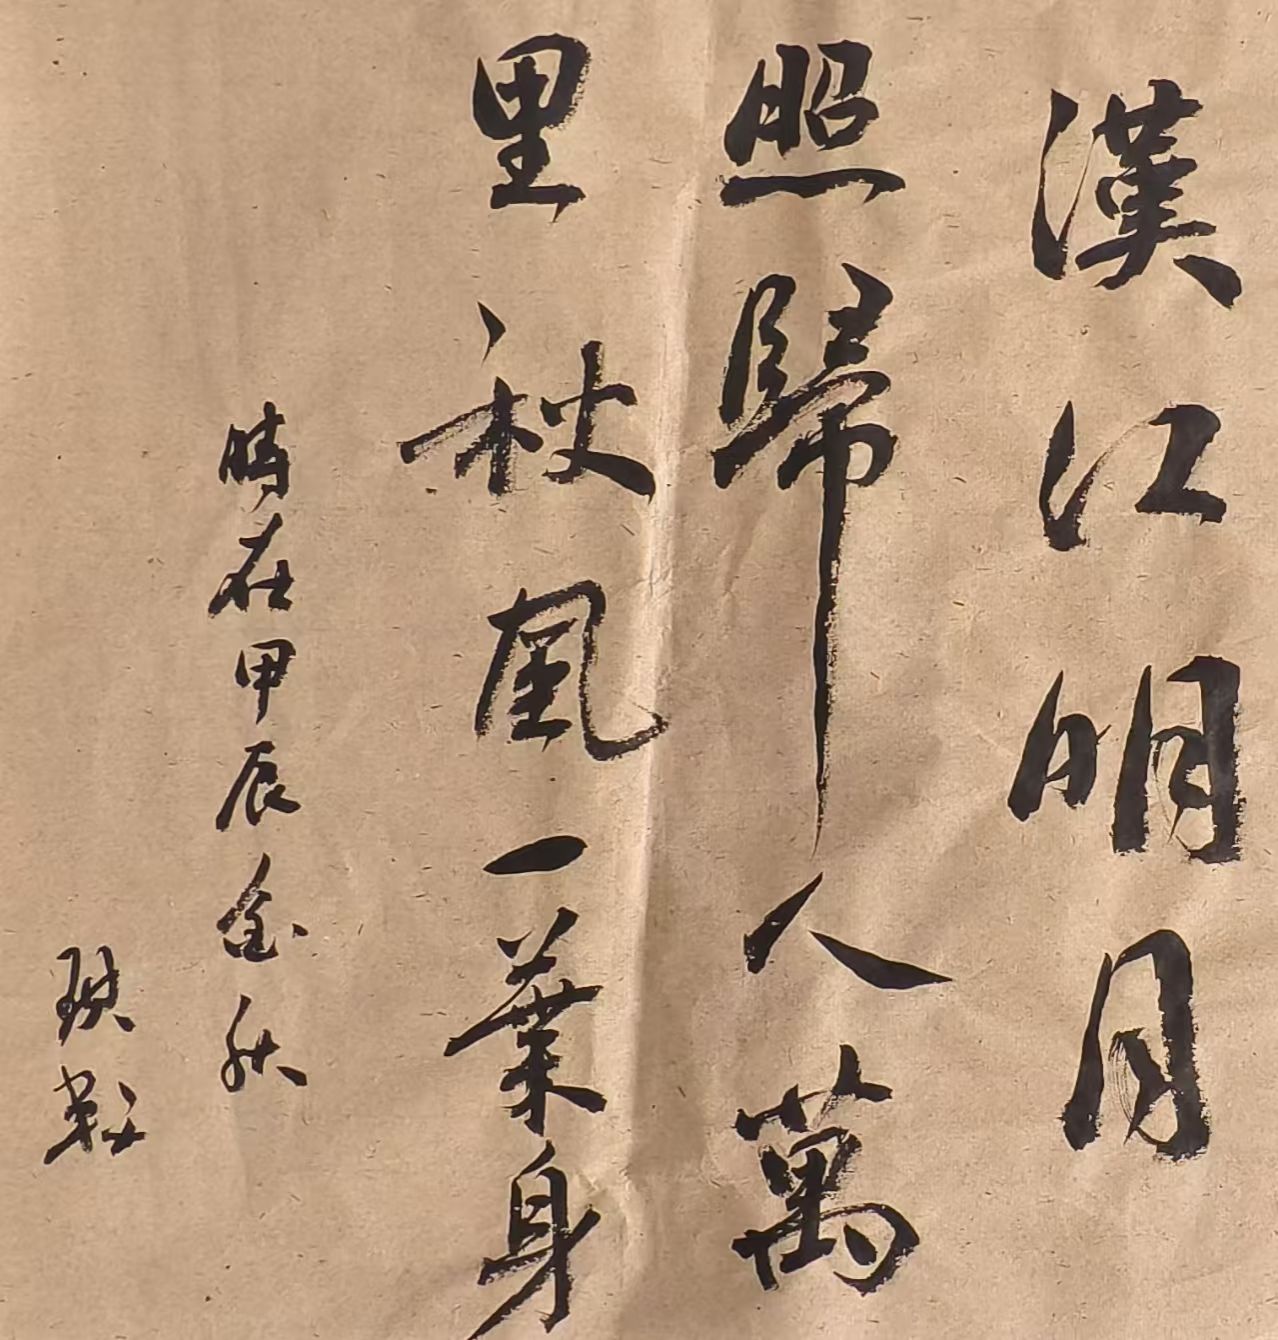 漢江明月
照歸人萬
里秋風一葉身
時在甲辰金秋